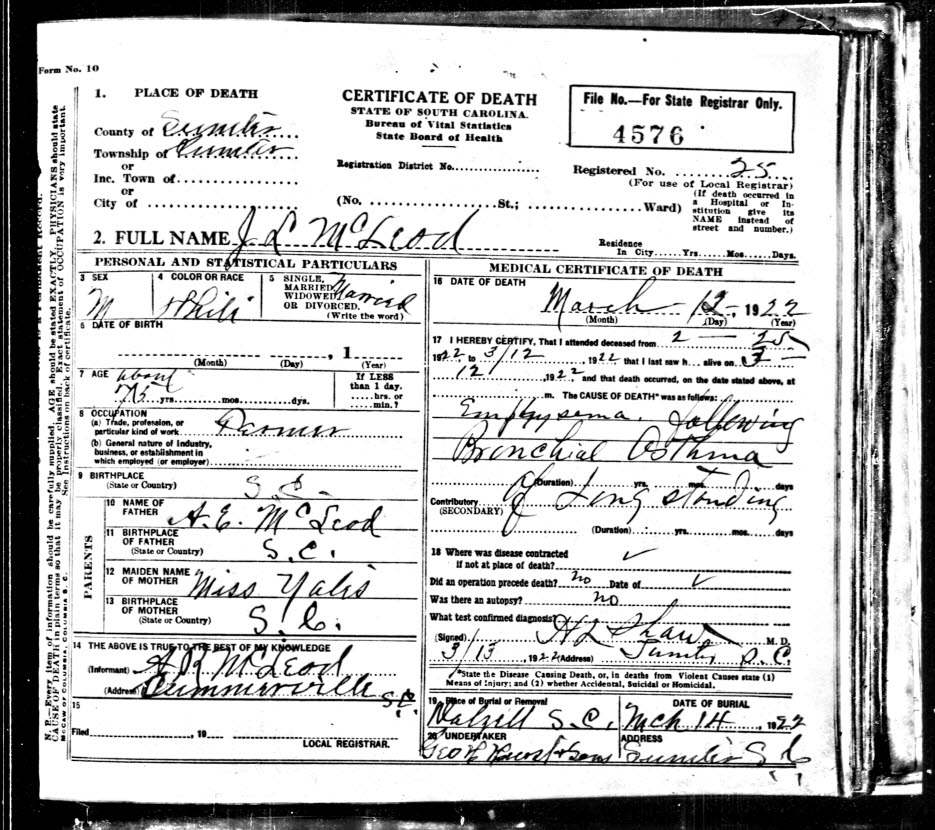 Form No. 10
1. PLACE OF DEATH
County of Sumter
Township of Sumter
or
Inc. Town of
or
City of
CERTIFICATE OF DEATH
STATE OF SOUTH CAROLINA.
Bureau of Vital Statistics
State Board of Health
Registration District No.
(No. St.; Ward)
File No.—For State Registrar Only.
4576
Registered No. 25
(For use of Local Registrar)
(If death occurred in
a Hospital or In-
stitution give its
NAME instead of
street and number.)
2. FULL NAME J L McLeod
Residence
In City Yrs. Mos. Days.
PERSONAL AND STATISTICAL PARTICULARS
3 SEX
M
4 COLOR OR RACE
White
5 SINGLE,
MARRIED,
WIDOWED
OR DIVORCED.
(Write the word)
Married
6 DATE OF BIRTH
, 1
(Month) (Day) (Year)
7 AGE about
75 yrs. mos. dys.
If LESS
than 1 day.
hrs. or
min.?
8 OCCUPATION
(a) Trade, profession, or
particular kind of work Farmer
(b) General nature of Industry,
business, or establishment in
which employed (or employer)
9 BIRTHPLACE
(State or Country) S.C.
PARENTS
10 NAME OF
FATHER A. E. McLeod
11 BIRTHPLACE
OF FATHER
(State or Country) S.C.
12 MAIDEN NAME
OF MOTHER Miss
13 BIRTHPLACE
OF MOTHER
(State or Country) S.C.
14 THE ABOVE IS TRUE TO THE BEST OF MY KNOWLEDGE
(Informant) A R McLeod
(Address) Summerville S.C.
15
Filed , 19
LOCAL REGISTRAR.
MEDICAL CERTIFICATE OF DEATH
16 DATE OF DEATH
March 12, 1922
(Month) (Day) (Year)
17 I HEREBY CERTIFY, That I attended deceased from 2 — 25
1922 to 3/12, 1922 that I last saw h alive on 3 —
12, 1922 and that death occurred, on the date stated above, at
m. The CAUSE OF DEATH* was as follows:
Emphysema. following
Bronchial Asthma
(Duration) yrs. mos. days
of Long standing
Contributory
(SECONDARY)
(Duration) yrs. mos. days
18 Where was disease contracted
if not at place of death? ✓
Did an operation precede death? no Date of ✓
Was there an autopsy? no
What test confirmed diagnosis?
(Signed) H L Shaw M. D.
3/13, 1922 (Address) Sumter S.C.
*State the Disease Causing Death, or, in deaths from Violent Causes state (1)
Means of Injury; and (2) whether Accidental, Suicidal or Homicidal.
19 Place of Burial or Removal
Dalzell S.C.
DATE OF BURIAL
Mch 14, 1922
20 UNDERTAKER
Geo H Hurst & Sons
ADDRESS
Sumter S C
N. B.—Every item of information should be carefully supplied. AGE should be stated EXACTLY. PHYSICIANS should state
CAUSE OF DEATH in plain terms so that it may be properly classified. Exact statement of OCCUPATION is very important.
See instructions on back of certificate.
McCAW OF COLUMBIA, COLUMBIA S. C.